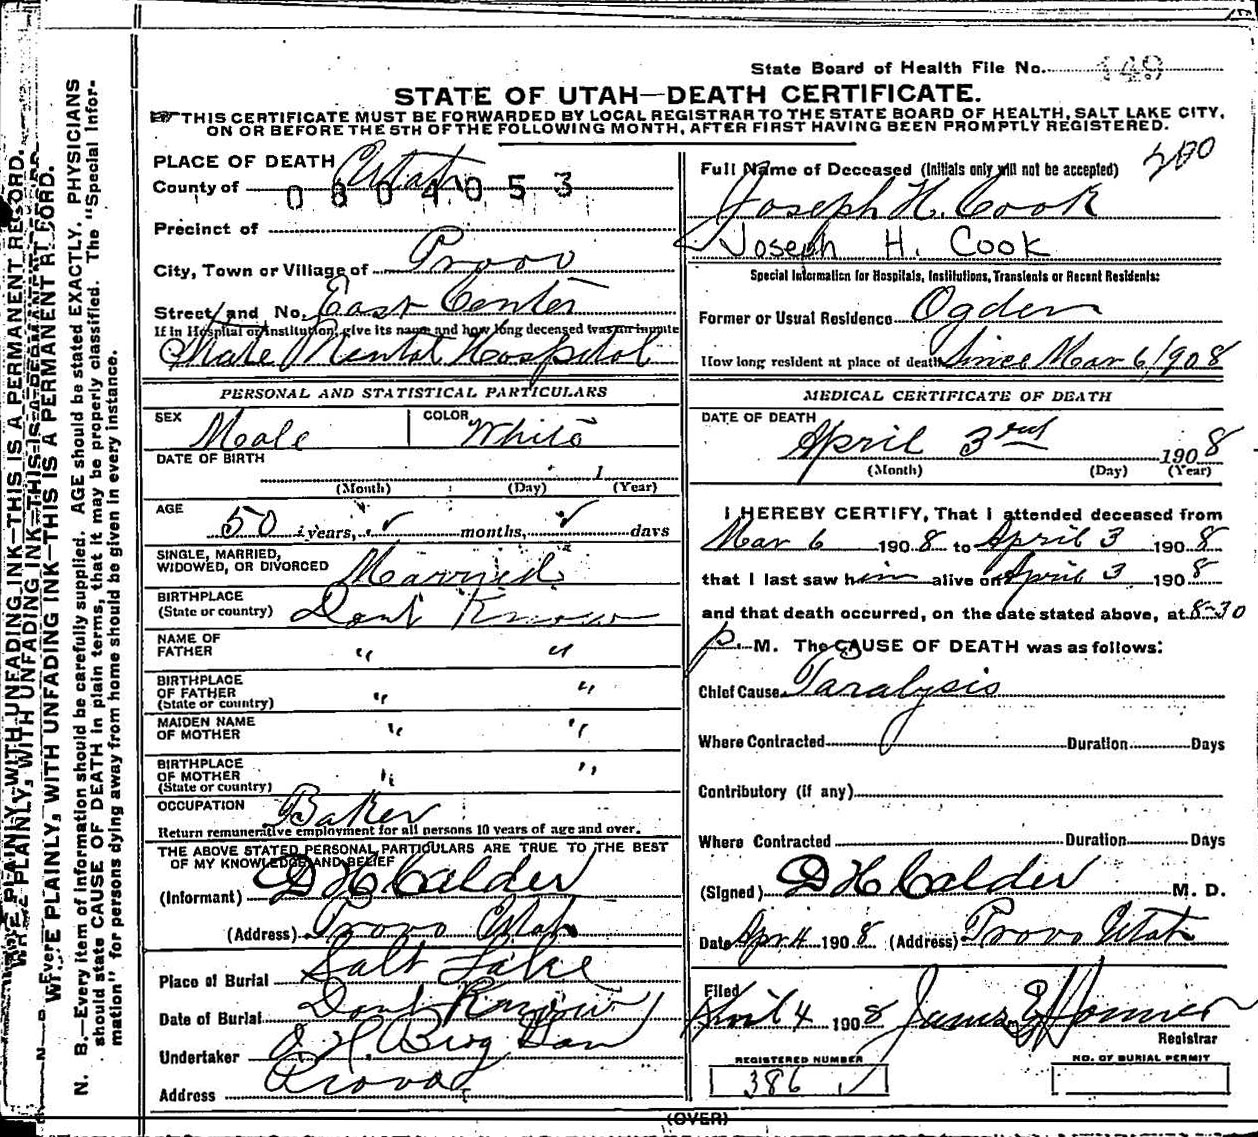 State Board of Health File No. 149
STATE OF UTAH—DEATH CERTIFICATE.
THIS CERTIFICATE MUST BE FORWARDED BY LOCAL REGISTRAR TO THE STATE BOARD OF HEALTH, SALT LAKE CITY,
ON OR BEFORE THE 5TH OF THE FOLLOWING MONTH, AFTER FIRST HAVING BEEN PROMPTLY REGISTERED.
PLACE OF DEATH
County of Utah
0804053
Precinct of
City, Town or Village of Provo
Street and No. East Center
If in Hospital or Institution, give its name and how long deceased was an inmate
State Mental Hospital
PERSONAL AND STATISTICAL PARTICULARS
SEX Male COLOR White
DATE OF BIRTH
1
(Month) (Day) (Year)
AGE
50 years, months, days
SINGLE, MARRIED,
WIDOWED, OR DIVORCED Married
BIRTHPLACE
(State or country) Dont Know
NAME OF
FATHER " "
BIRTHPLACE
OF FATHER
(State or country) " "
MAIDEN NAME
OF MOTHER " "
BIRTHPLACE
OF MOTHER
(State or country) " "
OCCUPATION Baker
Return remunerative employment for all persons 10 years of age and over.
THE ABOVE STATED PERSONAL PARTICULARS ARE TRUE TO THE BEST
OF MY KNOWLEDGE AND BELIEF
(Informant) D H Calder
(Address) Provo Utah
Place of Burial Salt Lake
Date of Burial Dont Know
Undertaker
Address Provo
Full Name of Deceased (Initials only will not be accepted)
Joseph H. Cook
Joseph H. Cook
Special Information for Hospitals, Institutions, Transients or Recent Residents:
Former or Usual Residence Ogden
How long resident at place of death Since Mar 6/1908
MEDICAL CERTIFICATE OF DEATH
DATE OF DEATH
April 3rd 1908
(Month) (Day) (Year)
I HEREBY CERTIFY, That I attended deceased from
Mar 6 1908 to April 3 1908
that I last saw him alive on April 3 1908
and that death occurred, on the date stated above, at 8-30
P. M. The CAUSE OF DEATH was as follows:
Chief Cause Paralysis
Where Contracted Duration Days
Contributory (if any)
Where Contracted Duration Days
(Signed) D H Calder M. D.
Date Apr 4 1908 (Address) Provo Utah
Filed
April 4 1908 James
Registrar
REGISTERED NUMBER
386
NO. OF BURIAL PERMIT
(OVER)
WRITE PLAINLY, WITH UNFADING INK—THIS IS A PERMANENT RECORD.
N. B.—Every item of information should be carefully supplied. AGE should be stated EXACTLY. PHYSICIANS
should state CAUSE OF DEATH in plain terms, that it may be properly classified. The "Special Infor-
mation" for persons dying away from home should be given in every instance.